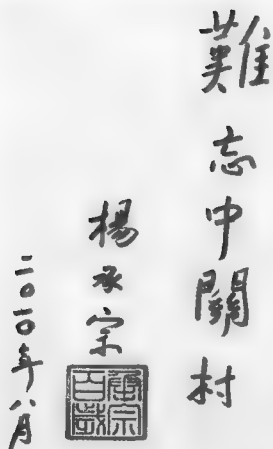 難忘中關村
楊承宗
二〇一〇年八月